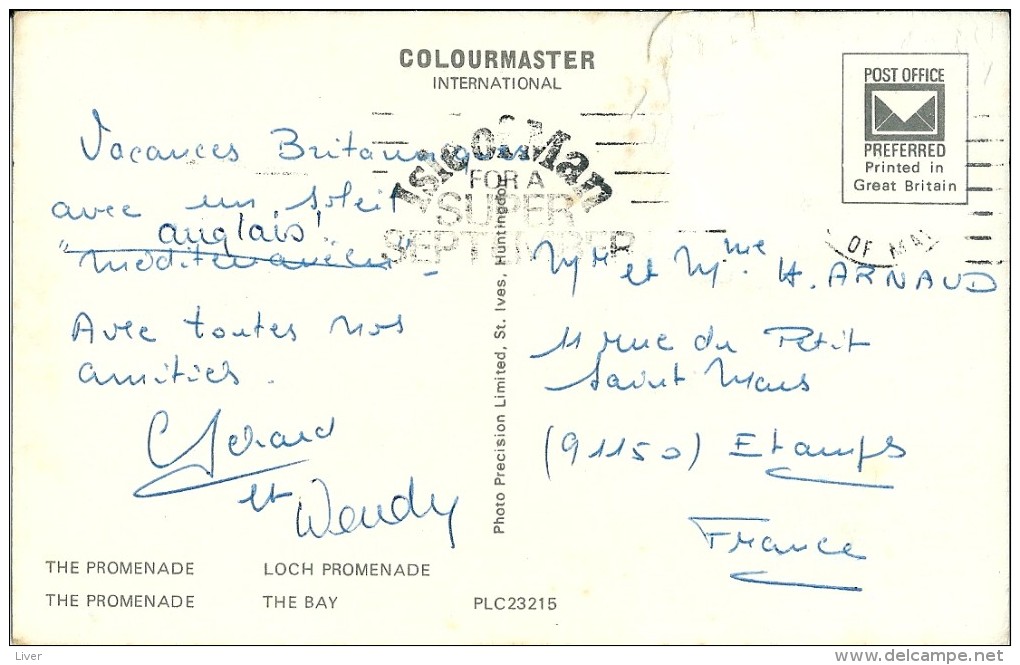 COLOURMASTER
INTERNATIONAL
POST OFFICE
PREFERRED
Printed in
Great Britain
Isle of Man
FOR A
SUPER
SEPTEMBER
OF MAN
Vacances Britanniques
avec un soleil
anglais!
"méditerranéen" -
Avec toutes nos
amitiés.
Gérard
et Wendy
Mr et Mme H. ARNAUD
11 rue du Petit
Saint Mars
(91150) Etamps
France
Photo Precision Limited, St. Ives, Huntingdon
THE PROMENADE LOCH PROMENADE
THE PROMENADE THE BAY PLC23215
Liver
www.delcampe.net